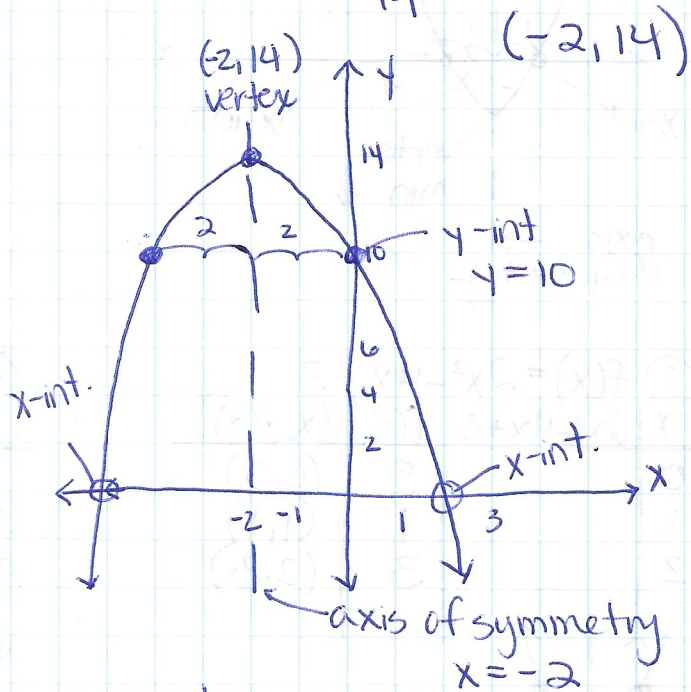 (-2, 14)
(-2, 14)
vertex
y
14
2
2
10
y-int
y = 10
6
4
2
x-int.
x-int.
x
-2 -1
1
3
axis of symmetry
x = -2